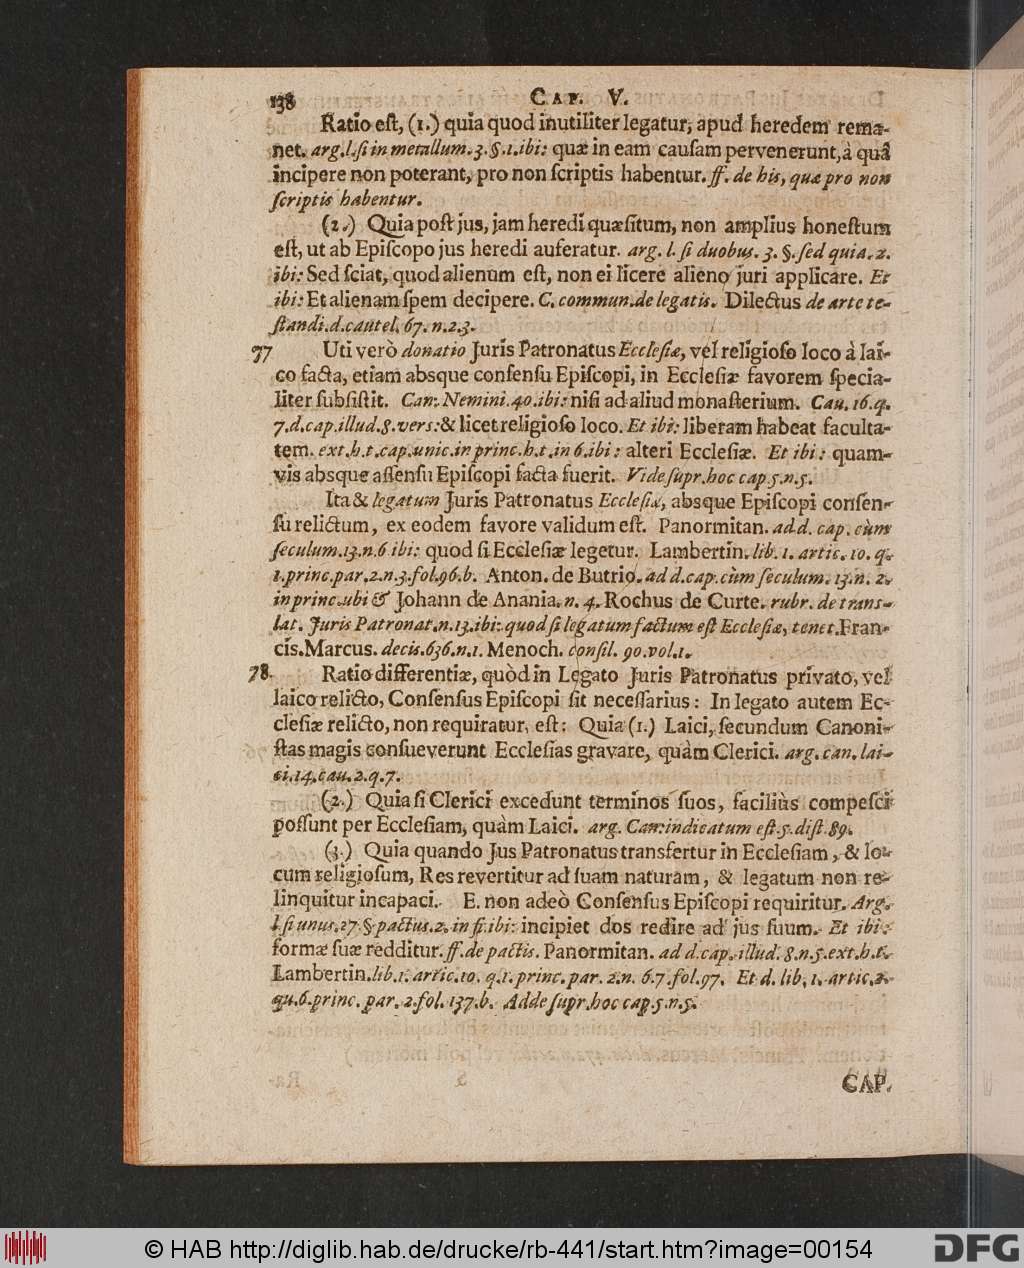 138 CAP. V.
Ratio eſt, (1.) quia quod inutiliter legatur, apud heredem rema-
net. arg. l. ſi in metallum. 3. §. 1. ibi: quæ in eam cauſam pervenerunt, à quâ
incipere non poterant, pro non ſcriptis habentur. ff. de his, quæ pro non
ſcriptis habentur.
(2.) Quia poſt jus, jam heredi quæſitum, non amplius honeſtum
eſt, ut ab Epiſcopo jus heredi auferatur. arg. l. ſi duobus. 3. §. ſed quia. 2.
ibi: Sed ſciat, quod alienum eſt, non ei licere alieno juri applicare. Et
ibi: Et alienam ſpem decipere. C. commun. de legatis. Dilectus de arte te-
ſtandi. d. cautel. 67. n. 23.
77 Uti verò donatio Juris Patronatus Eccleſiæ, vel religioſo loco à lai-
co facta, etiam absque conſenſu Epiſcopi, in Eccleſiæ favorem ſpecia-
liter ſubſiſtit. Can. Nemini. 40. ibi: niſi ad aliud monaſterium. Cau. 16. q.
7. d. cap. illud. 8. vers: & licet religioſo loco. Et ibi: liberam habeat faculta-
tem. ext. h. t. cap. unic. in princ. h. t. in 6. ibi: alteri Eccleſiæ. Et ibi: quam-
vis absque aſſenſu Epiſcopi facta fuerit. Vide ſupr. hoc cap. 5. n. 5.
Ita & legatum Juris Patronatus Eccleſiæ, absque Epiſcopi conſen-
ſu relictum, ex eodem favore validum eſt. Panormitan. ad d. cap. cùm
ſeculum. 13. n. 6 ibi: quod ſi Eccleſiæ legetur. Lambertin. lib. 1. artic. 10. q.
1. princ. par. 2. n. 3. fol. 96. b. Anton. de Butrio. ad d. cap. cùm ſeculum. 13. n. 2.
in princ. ubi & Johann de Anania. n. 4. Rochus de Curte. rubr. de trans-
lat. Juris Patronat. n. 13. ibi: quod ſi legatum factum eſt Eccleſiæ, tenet. Fran-
cis. Marcus. decis. 636. n. 1. Menoch. conſil. 90. vol. 1.
78. Ratio differentiæ, quòd in Legato Juris Patronatus privato, vel
laico relicto, Conſenſus Epiſcopi ſit neceſſarius: In legato autem Ec-
cleſiæ relicto, non requiratur, eſt: Quia (1.) Laici, ſecundum Canoni-
ſtas magis conſueverunt Eccleſias gravare, quàm Clerici. arg. can. lai-
ci. 14. cau. 2. q. 7.
(2.) Quia ſi Clerici excedunt terminos ſuos, faciliùs compeſci
poſſunt per Eccleſiam, quàm Laici. arg. Can: indicatum eſt. 5. diſt. 89.
(3.) Quia quando Jus Patronatus transfertur in Eccleſiam, & lo-
cum religioſum, Res revertitur ad ſuam naturam, & legatum non re-
linquitur incapaci. E. non adeò Conſenſus Epiſcopi requiritur. Arg.
l. ſi unus. 27. §. pactus. 2. in fi. ibi: incipiet dos redire ad jus ſuum. Et ibi:
formæ ſuæ redditur. ff. de pactis. Panormitan. ad d. cap. illud. 8. n. 5. ext. h. t.
Lambertin. lib. 1. artic. 10. q. 1. princ. par. 2. n. 6. 7. fol. 97. Et d. lib. 1. artic. 2.
qu. 6. princ. par. 2. fol. 137. b. Adde ſupr. hoc cap. 5. n. 5.
CAP.
© HAB http://diglib.hab.de/drucke/rb-441/start.htm?image=00154
DFG